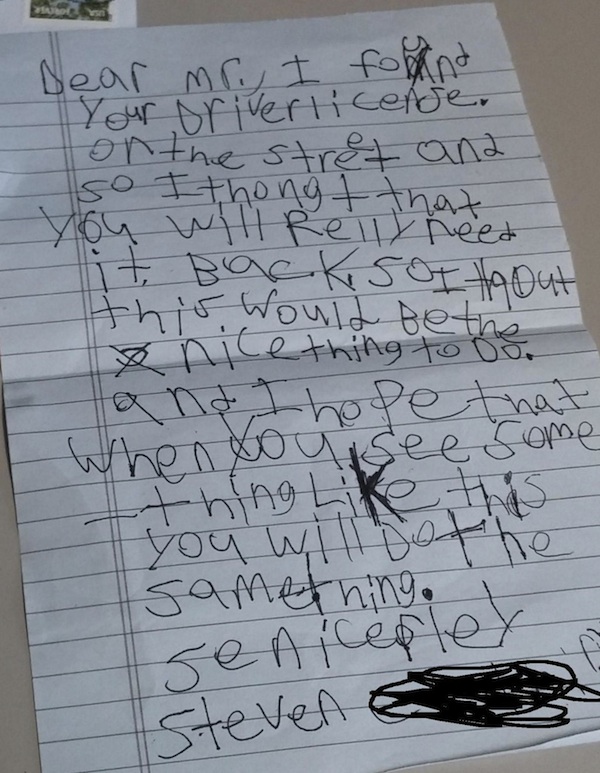 Dear mr., I found
Your Driverlicense.
on the street and
so I thongt that
you will Relly need
it. Back. so I thgout
this would Be the
nice thing to Do.
and I hope that
when you see some
-thing Like this
you will Do the
same thing.
senicerley
steven